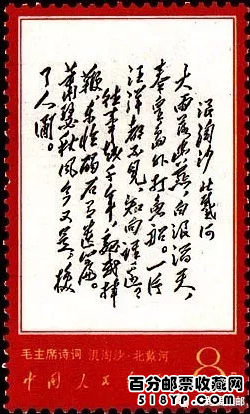 浪淘沙 北戴河
大雨落幽燕,白浪滔天,
秦皇島外打魚船。一片
汪洋都不見,知向誰邊?
往事越千年,魏武揮
鞭,東臨碣石有遺篇。
蕭瑟秋風今又是,換
了人間。
毛主席诗词 浪淘沙·北戴河
中国人民
8
百分邮票收藏网
518YP.com